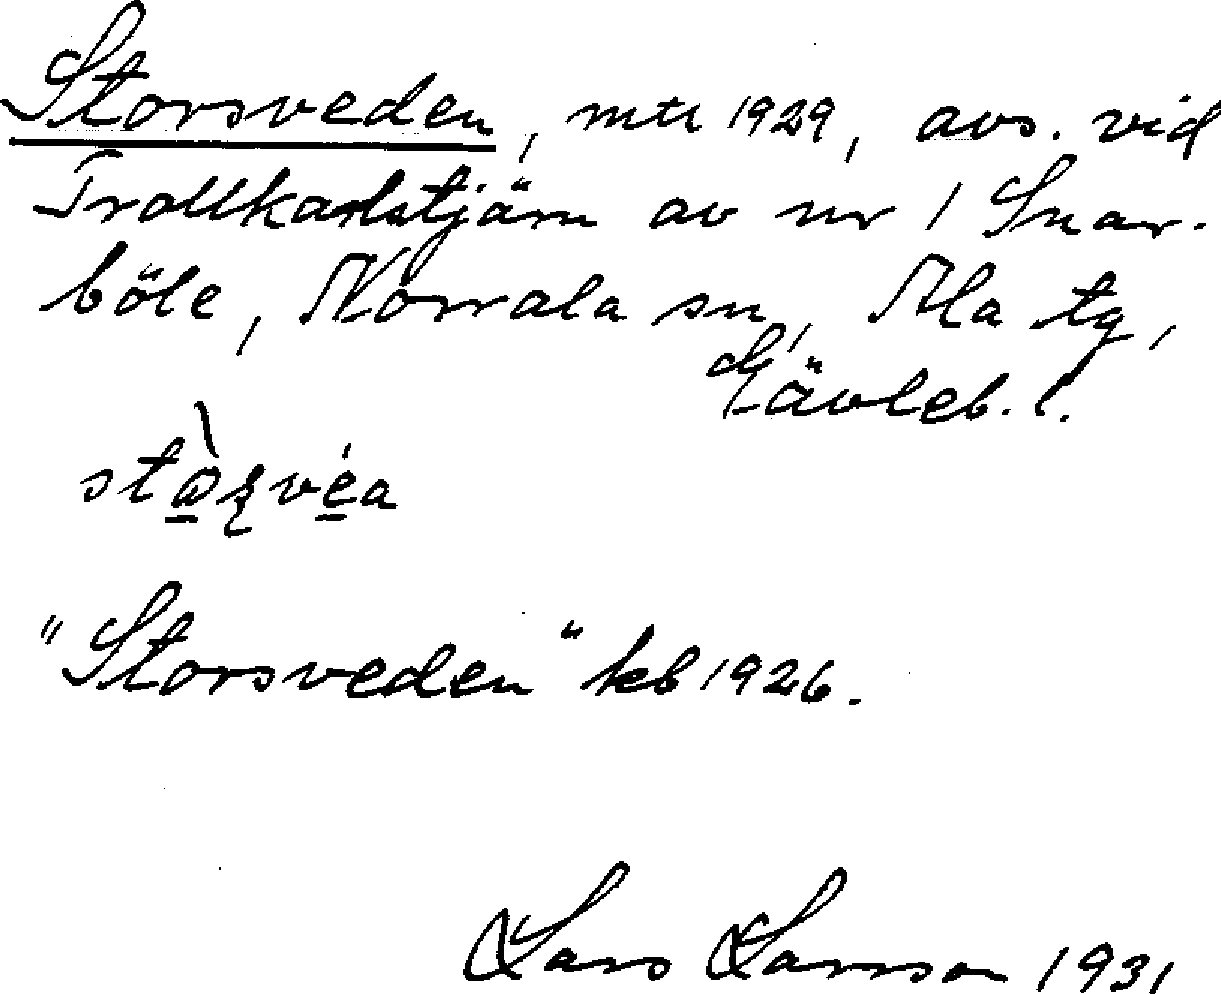 Storsveden, mtr 1929, avs. vid
Trollkarlstjärn av nr 1 Snar-
böle, Norrala sn, Ala tg,
Gävleb. l.
"Storsveden" keb 1926.
Lars Larsson 1931